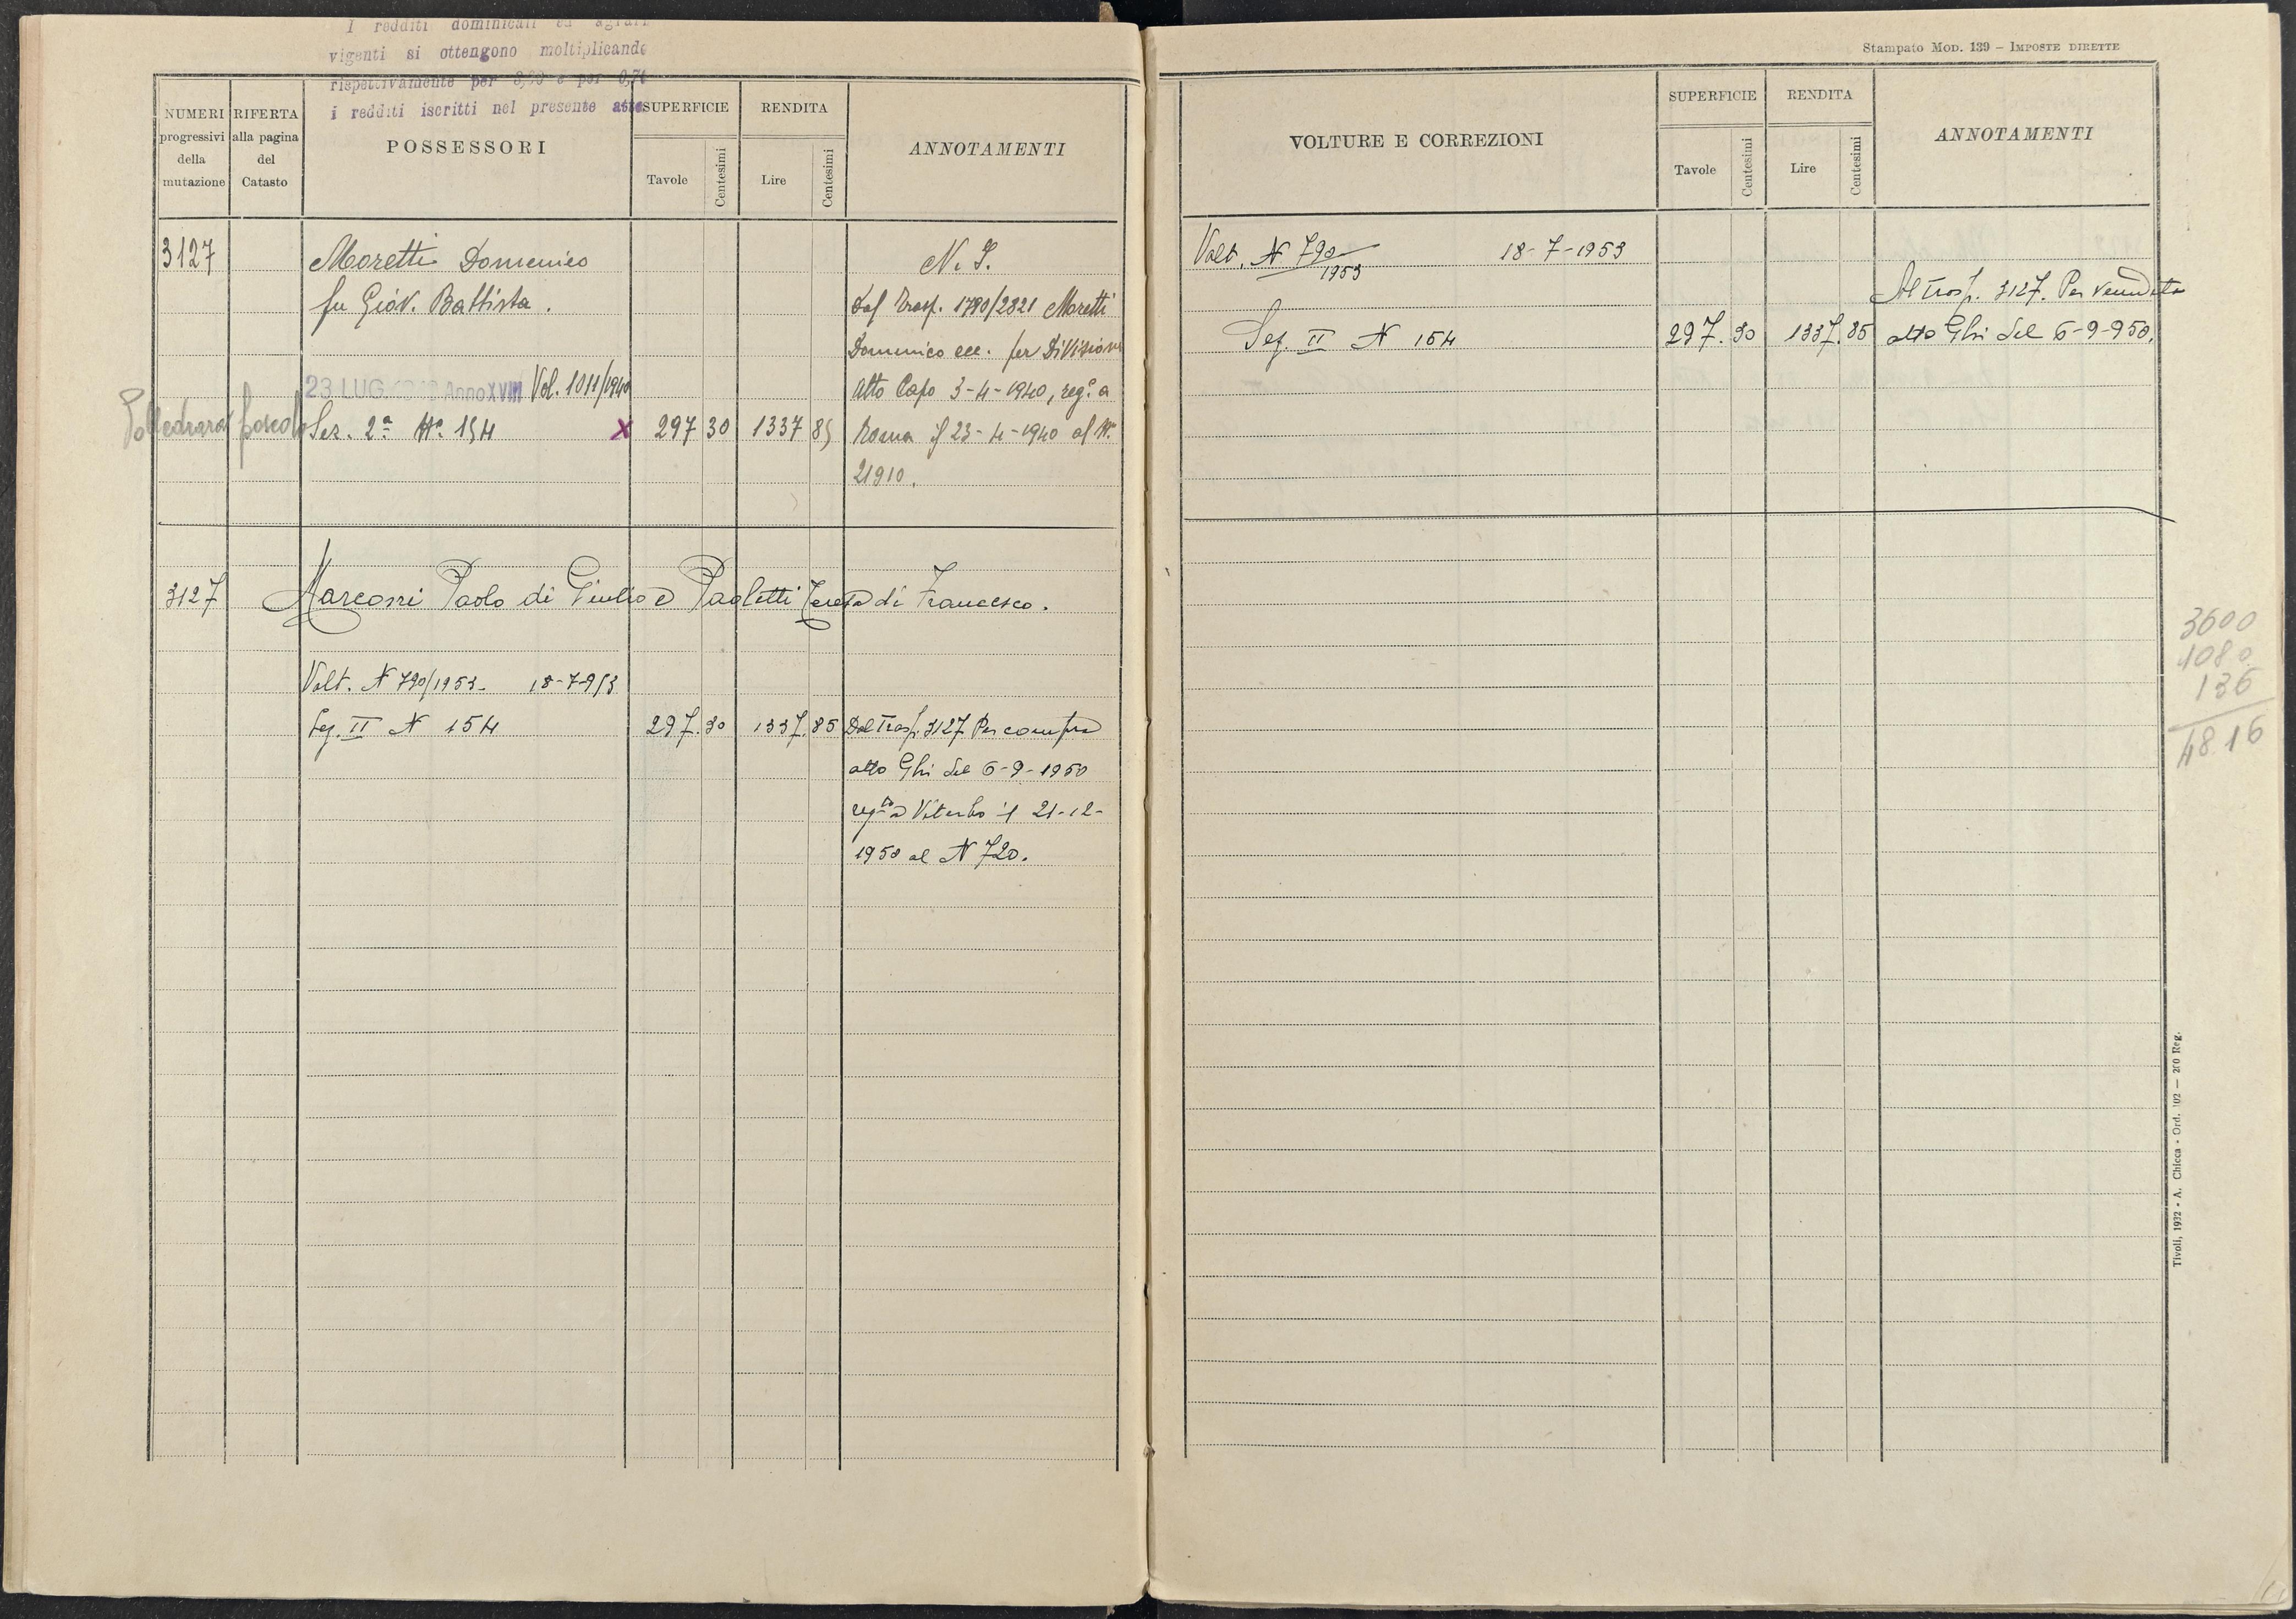 I redditi dominicali ed agrari
vigenti si ottengono moltiplicando
rispettivamente per e per 0,70
i redditi iscritti nel presente atto
NUMERI
progressivi
della
mutazione
RIFERTA
alla pagina
del
Catasto
POSSESSORI
SUPERFICIE
Tavole
Centesimi
RENDITA
Lire
Centesimi
ANNOTAMENTI
3127 Moretti Domenico N. I.
fu Giov. Battista. Dal Trasp. 1790/2821 Moretti
Domenico ecc. per Divisione
23 LUG. Anno XVIII Vol. 1011/1940 Atto Capo 3-4-1940, reg.o a
Ser. 2a No. 154 X 297 30 1337 85 Roma il 23-4-1940 al N.
21910.
3127 Marconi Paolo di Giulio e Paoletti di Francesco.
Volt. N 790/1953- 18-7-953
Sez. II N 154 297.30 1337.85 Dal Trasp. 3127 Per compra
atto Ghi del 6-9-1950
regto a Viterbo il 21-12-
1950 al N 720.
Stampato Mod. 139 – Imposte dirette
VOLTURE E CORREZIONI
SUPERFICIE
Tavole
Centesimi
RENDITA
Lire
Centesimi
ANNOTAMENTI
Volt. N 790/1953 18-7-1953
Al Trasp. 3127. Per vendita
Sez. II N 154 297.30 1337.85 atto Ghi del 6-9-950.
3600
1080
136
4816
Tivoli, 1932 - A. Chicca - Ord. 102 — 200 Reg.